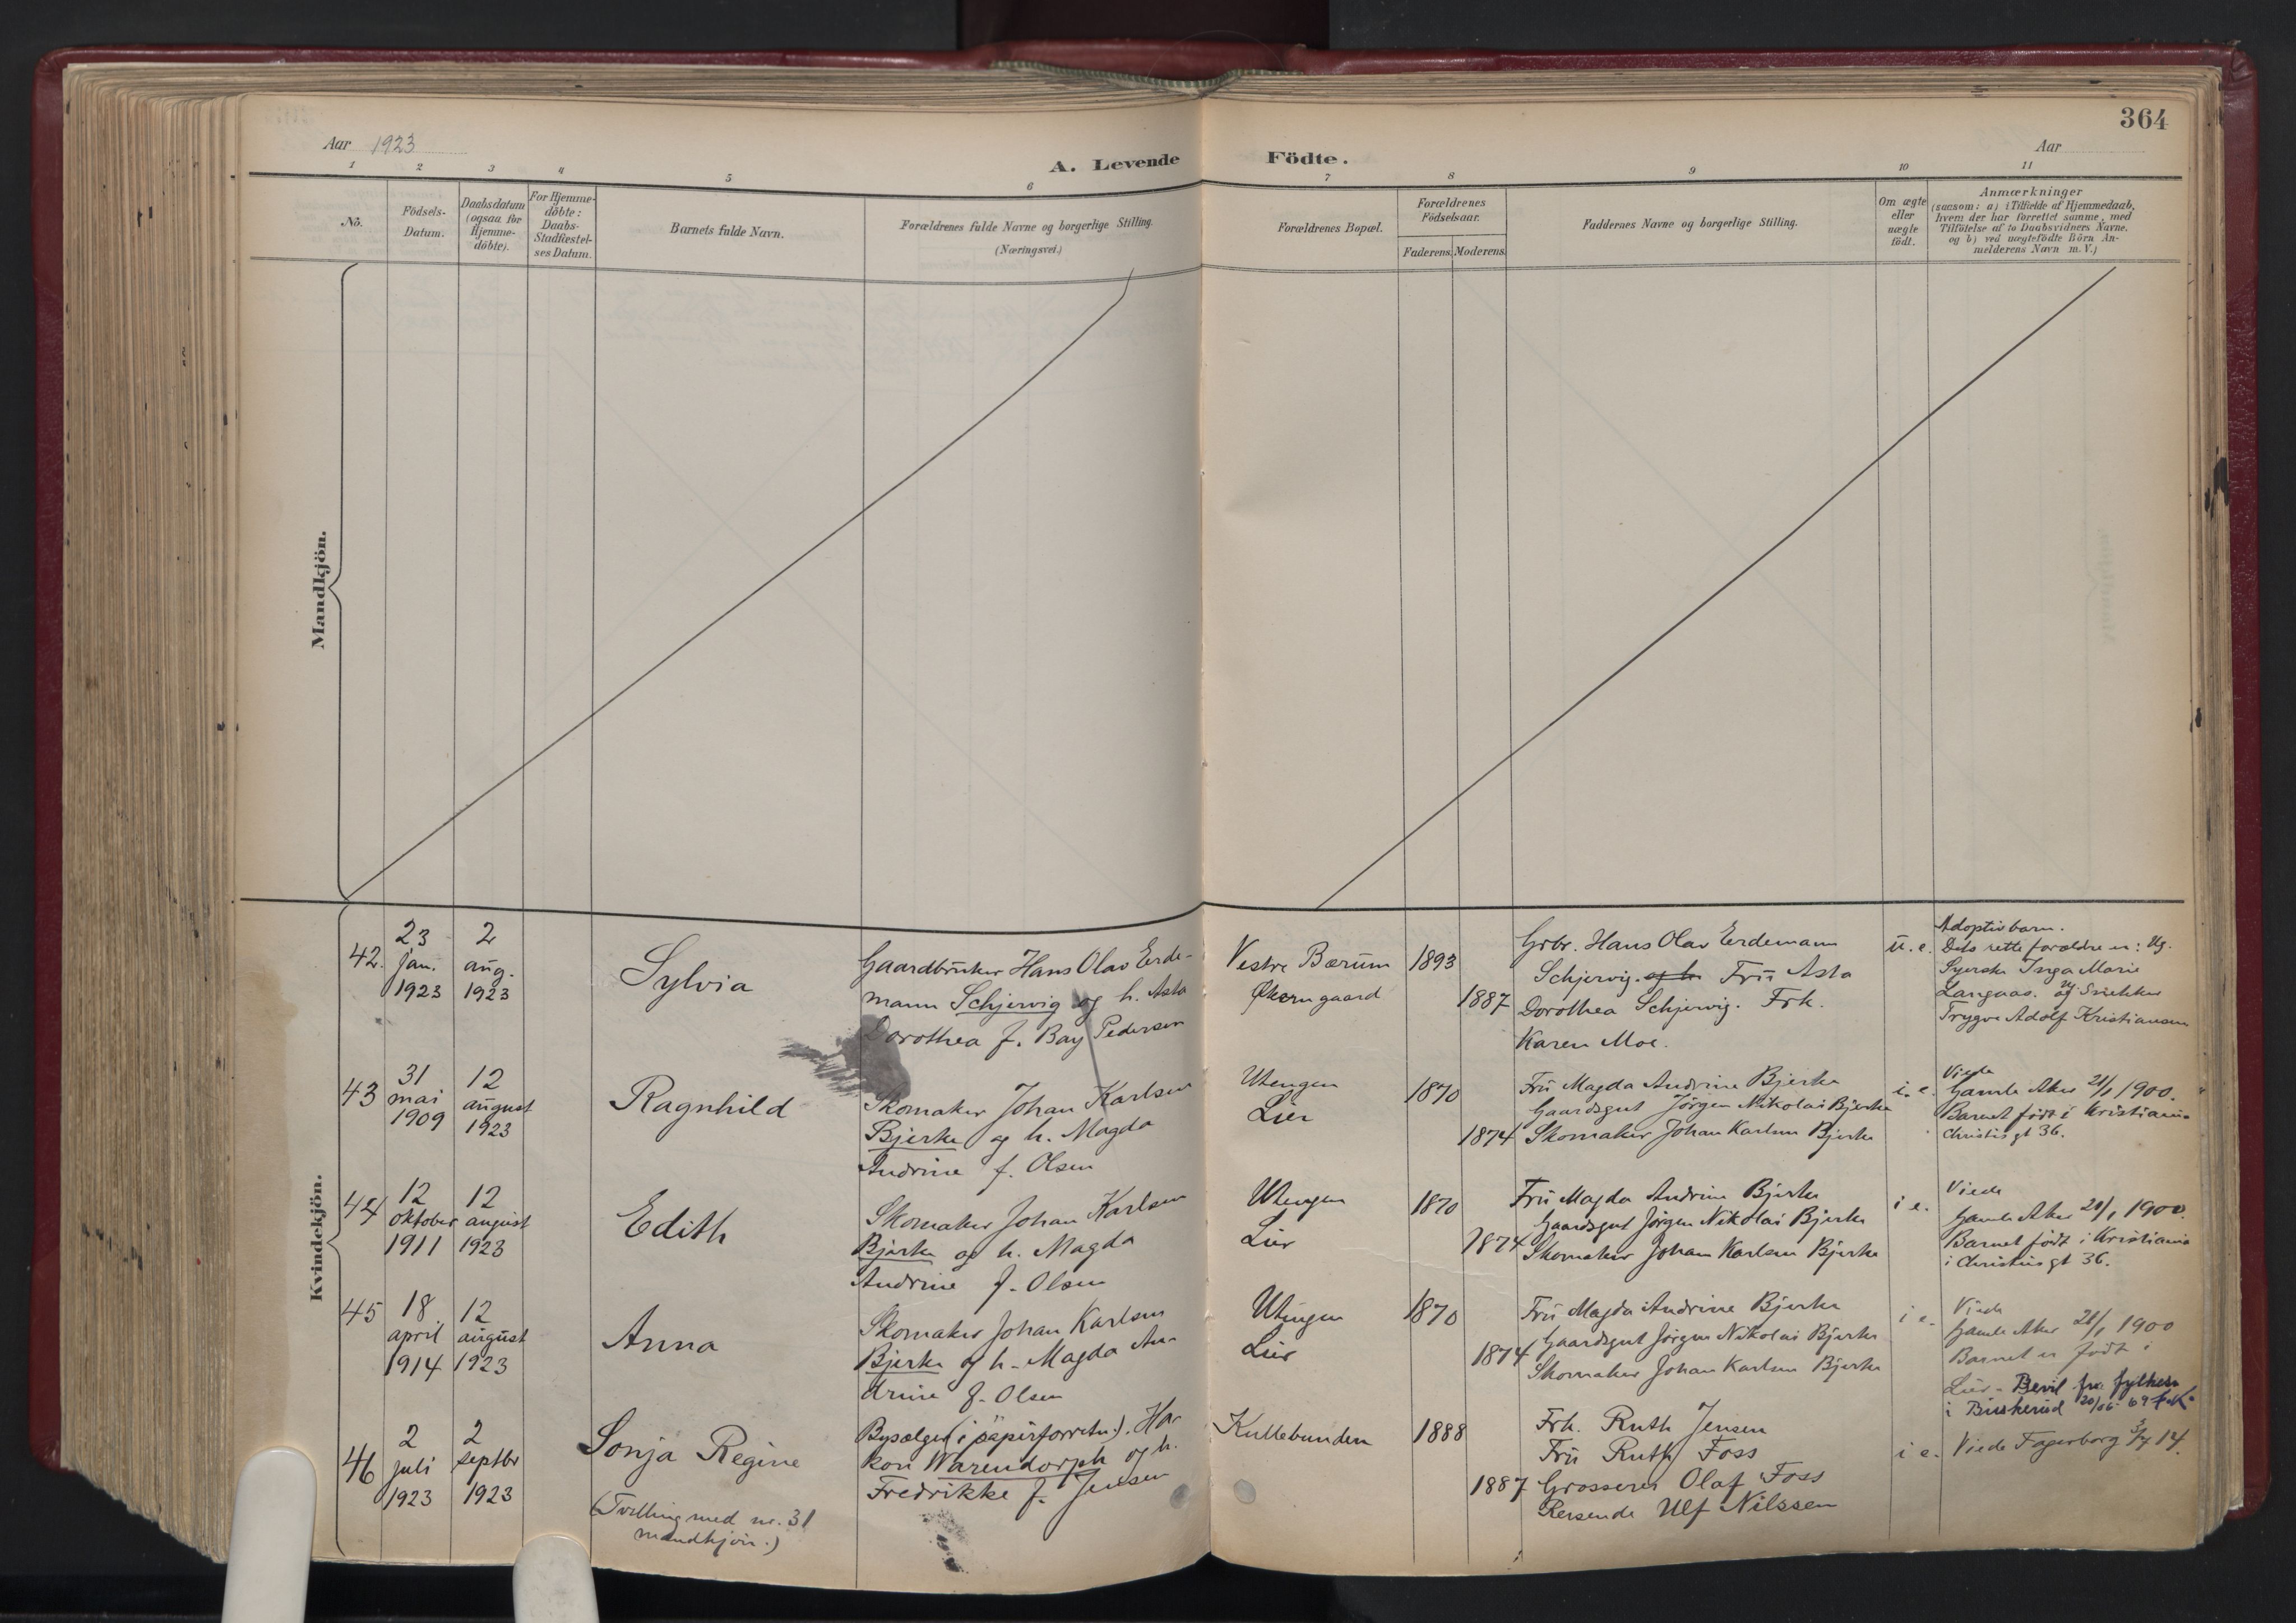 364
Aar 1923
Aar
A. Levende Födte.
1 2 3 4 5 6 7 8 9 10 11
No.
Födsels-
Datum.
Daabsdatum
(ogsaa for
Hjemme-
döbte).
For Hjemme-
döbte:
Daabs-
Stadfæstel-
ses Datum.
Barnets fulde Navn.
Forældrenes fulde Navne og borgerlige Stilling.
(Næringsvei.)
Forældrenes Bopæl.
Forældrenes
Födselsaar.
Faderens. Moderens.
Faddernes Navne og borgerlige Stilling.
Om ægte
eller
uægte
födt.
Anmærkninger
(saasom: a) i Tilfælde af Hjemmedaab,
hvem der har forrettet samme, med
Tilföielse af to Daabsvidners Navne,
og b) ved uægtefödte Börn An-
melderens Navn m. V.)
Mandkjön.
Kvindekjön.
42.
23
jan.
1923
2
aug.
1923
Sylvia
Gaardbruker Hans Olav Erde-
mann Schjervig og h. Asta
Dorothea f. Bay Pedersen
Vestre Bærum
Økern gaard
1893
1887
Grbr. Hans Olav Erdemann
Schjervig. og h. Fru Asta
Dorothea Schjervig. Frk.
Karen Moe.
u. e.
Adoptivbarn.
Dets rette forældre er: Ug.
Syerske Inga Marie
Langaas. og Ug. Snekker
Trygve Adolf Kristiansen
43
31
mai
1909
12
august
1923
Ragnhild
Skomaker Johan Karlsen
Bjerke og h. Magda
Andrine f. Olsen
Utengen
Lier
1870
1874
Fru Magda Andrine Bjerke
Gaardsgut Jørgen Nikolai Bjerke
Skomaker Johan Karlsen Bjerke
i. e.
Viede
Gamle Aker 21/1 1900.
Barnet født i Kristiania
Christiesgt 36.
44
12
oktober
1911
12
august
1923
Edith
Skomaker Johan Karlsen
Bjerke og h. Magda
Andrine f. Olsen
Utengen
Lier
1870
1874
Fru Magda Andrine Bjerke
Gaardsgut Jørgen Nikolai Bjerke
Skomaker Johan Karlsen Bjerke
i e.
Viede
Gamle Aker 21/1 1900.
Barnet født i Kristiania
i Christiesgt 36.
45
18
april
1914
12
august
1923
Anna
Skomaker Johan Karlsen
Bjerke og h. Magda An-
drine f. Olsen
Utengen
Lier
1870
1874
Fru Magda Andrine Bjerke
Gaardsgut Jørgen Nikolai Bjerke
Skomaker Johan Karlsen Bjerke
i e.
Viede
Gamle Aker 21/1 1900
Barnet er født i
Lier - Bevil fra fylkesm
i Buskerud 20/06-69
46
2
juli
1923
2
septbr
1923
Sonja Regine
(Tvilling med nr. 31
mandkjön.)
Bysælger (i papirforretn.). Haa-
kon Warendorph og h.
Fredrikke f. Jensen
Kullebunden
1888
1887
Frk. Ruth Jensen
Fru Ruth Foss
Grosserer Olaf Foss
Reisende Ulf Nilssen
i e.
Viede Fagerborg 3/7 14.